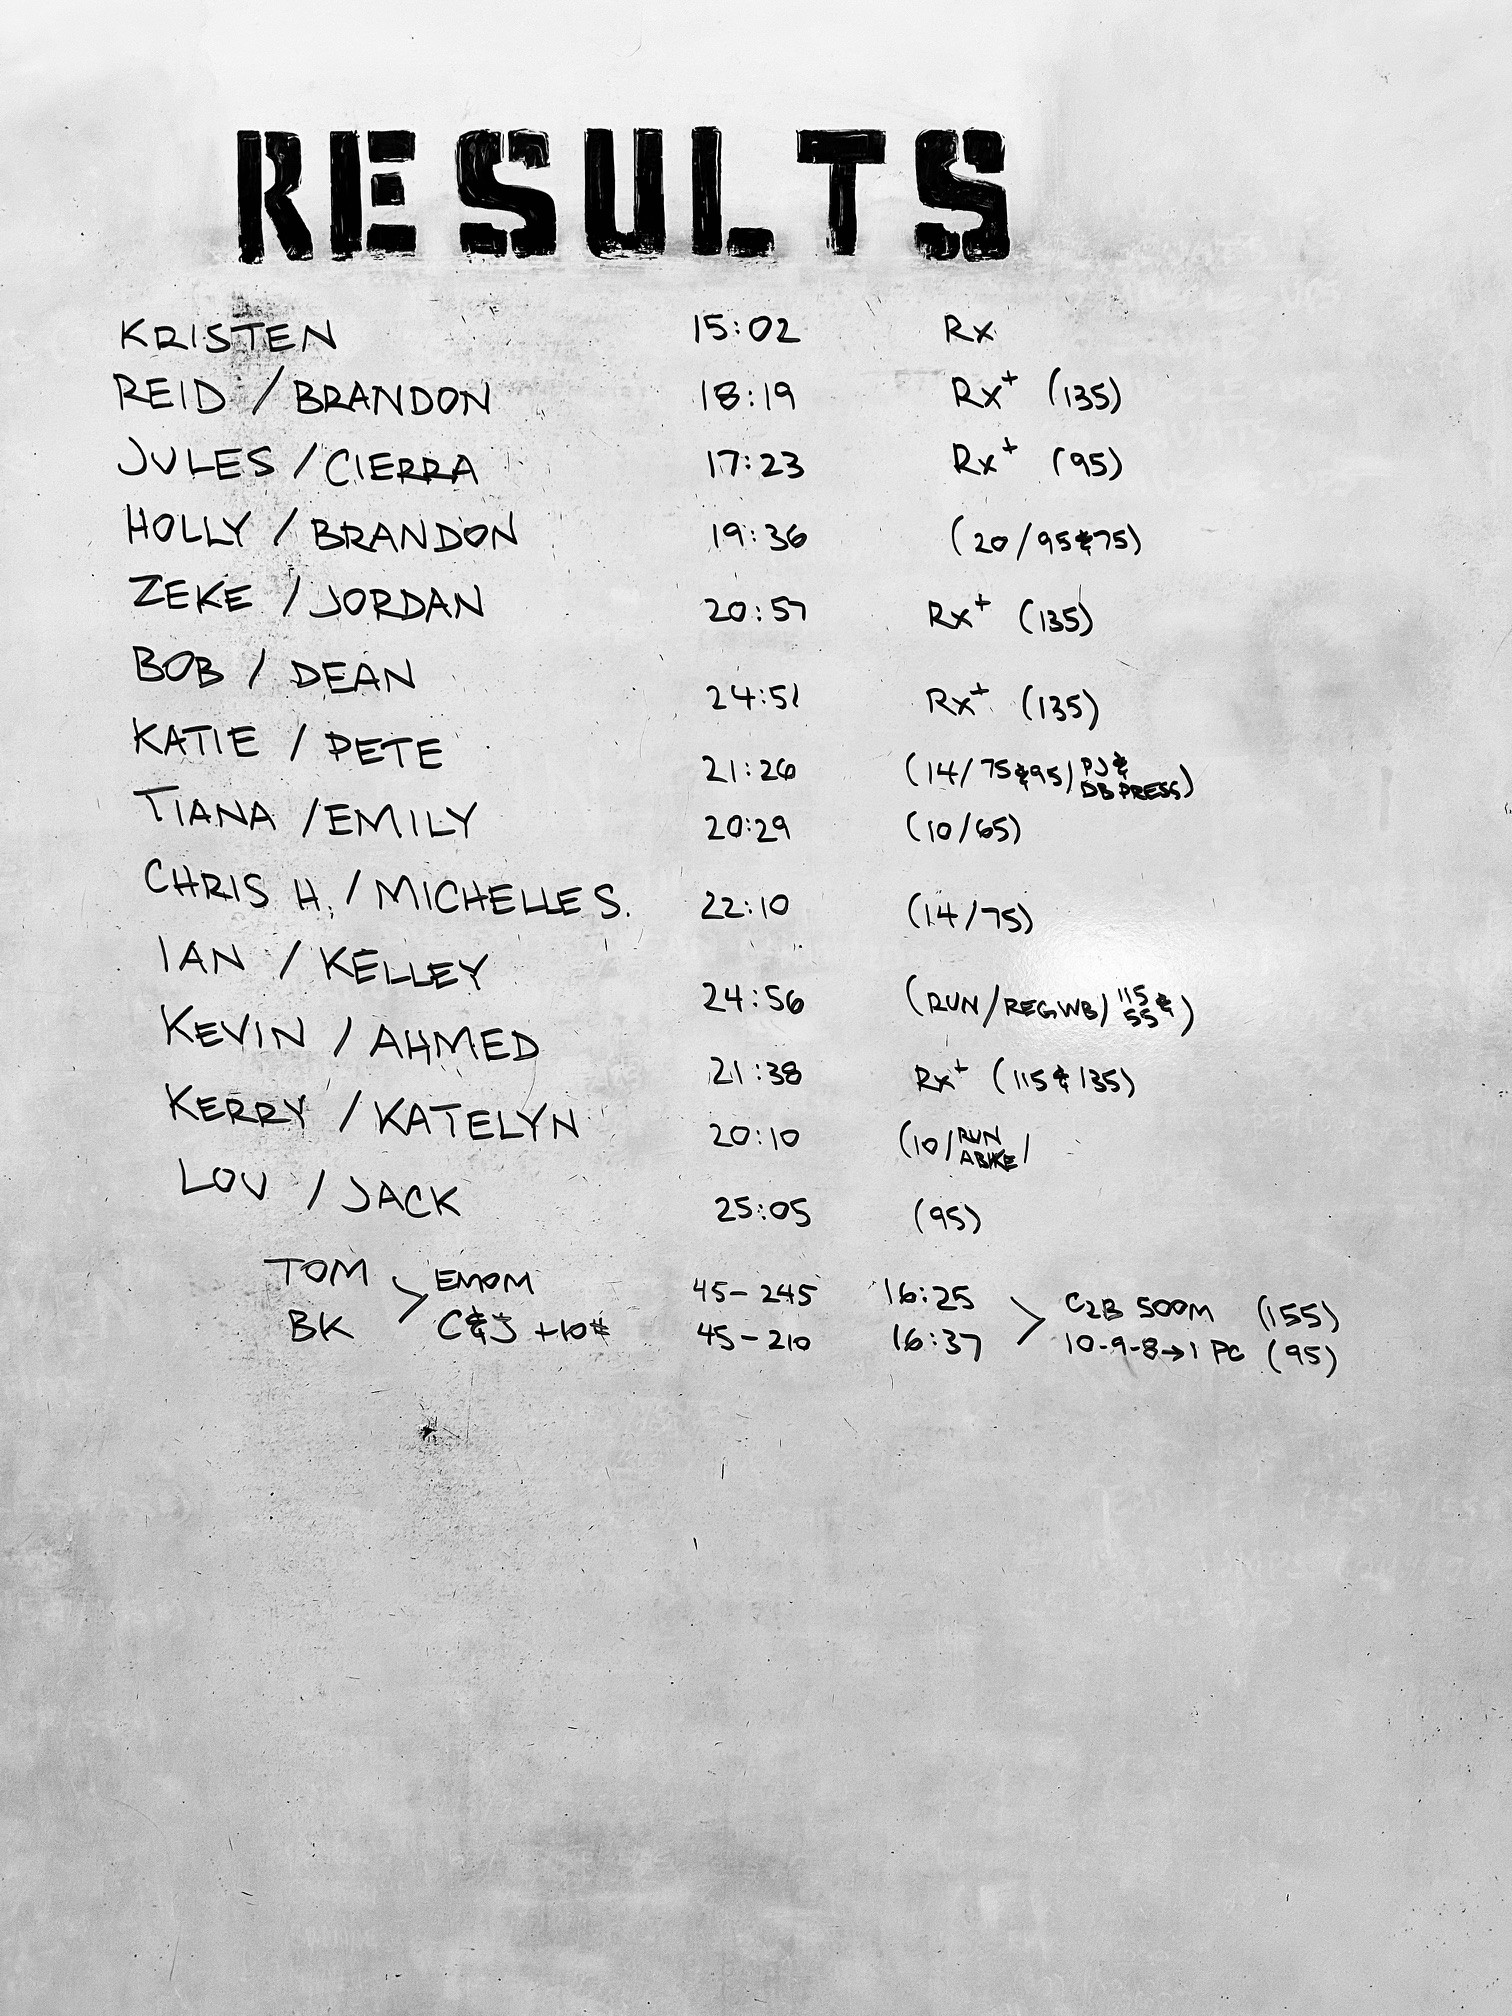 RESULTS
KRISTEN 15:02 Rx
REID / BRANDON 18:19 Rx+ (135)
JULES / CIERRA 17:23 Rx+ (95)
HOLLY / BRANDON 19:36 (20/95&75)
ZEKE / JORDAN 20:57 Rx+ (135)
BOB / DEAN 24:51 Rx+ (135)
KATIE / PETE 21:26 (14/75&95/PJ & DB PRESS)
TIANA / EMILY 20:29 (10/65)
CHRIS H. / MICHELLE S. 22:10 (14/75)
IAN / KELLEY 24:56 (RUN/REG WB/115 & 55)
KEVIN / AHMED 21:38 Rx+ (115 & 135)
KERRY / KATELYN 20:10 (10/RUN ABIKE/
LOU / JACK 25:05 (95)
TOM > EMOM 45-245 16:25 > C2B 500M (155)
BK C&J +10# 45-210 16:37 10-9-8→1 PC (95)